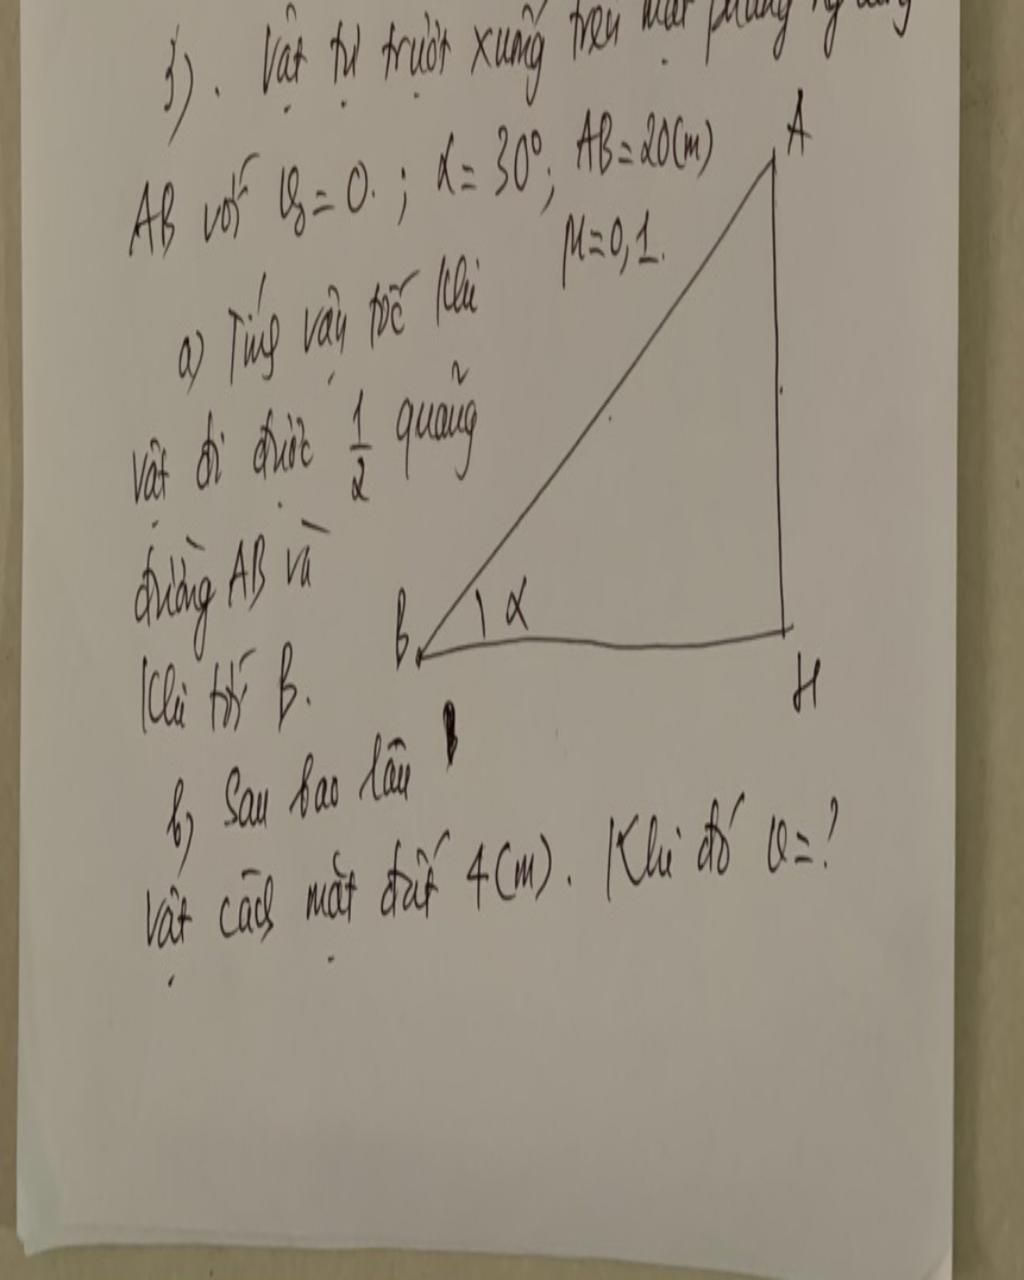 3). Vật tự trượt xuống trên mặt phẳng
AB với v₀ = 0. ; α = 30°; AB = 20(m)
μ = 0,1.
a) Tính vận tốc khi
vật đi được 1/2 quãng
đường AB và
khi tới B.
b) Sau bao lâu
vật cách mặt đất 4(m). Khi đó v = ?
A
B
α
H